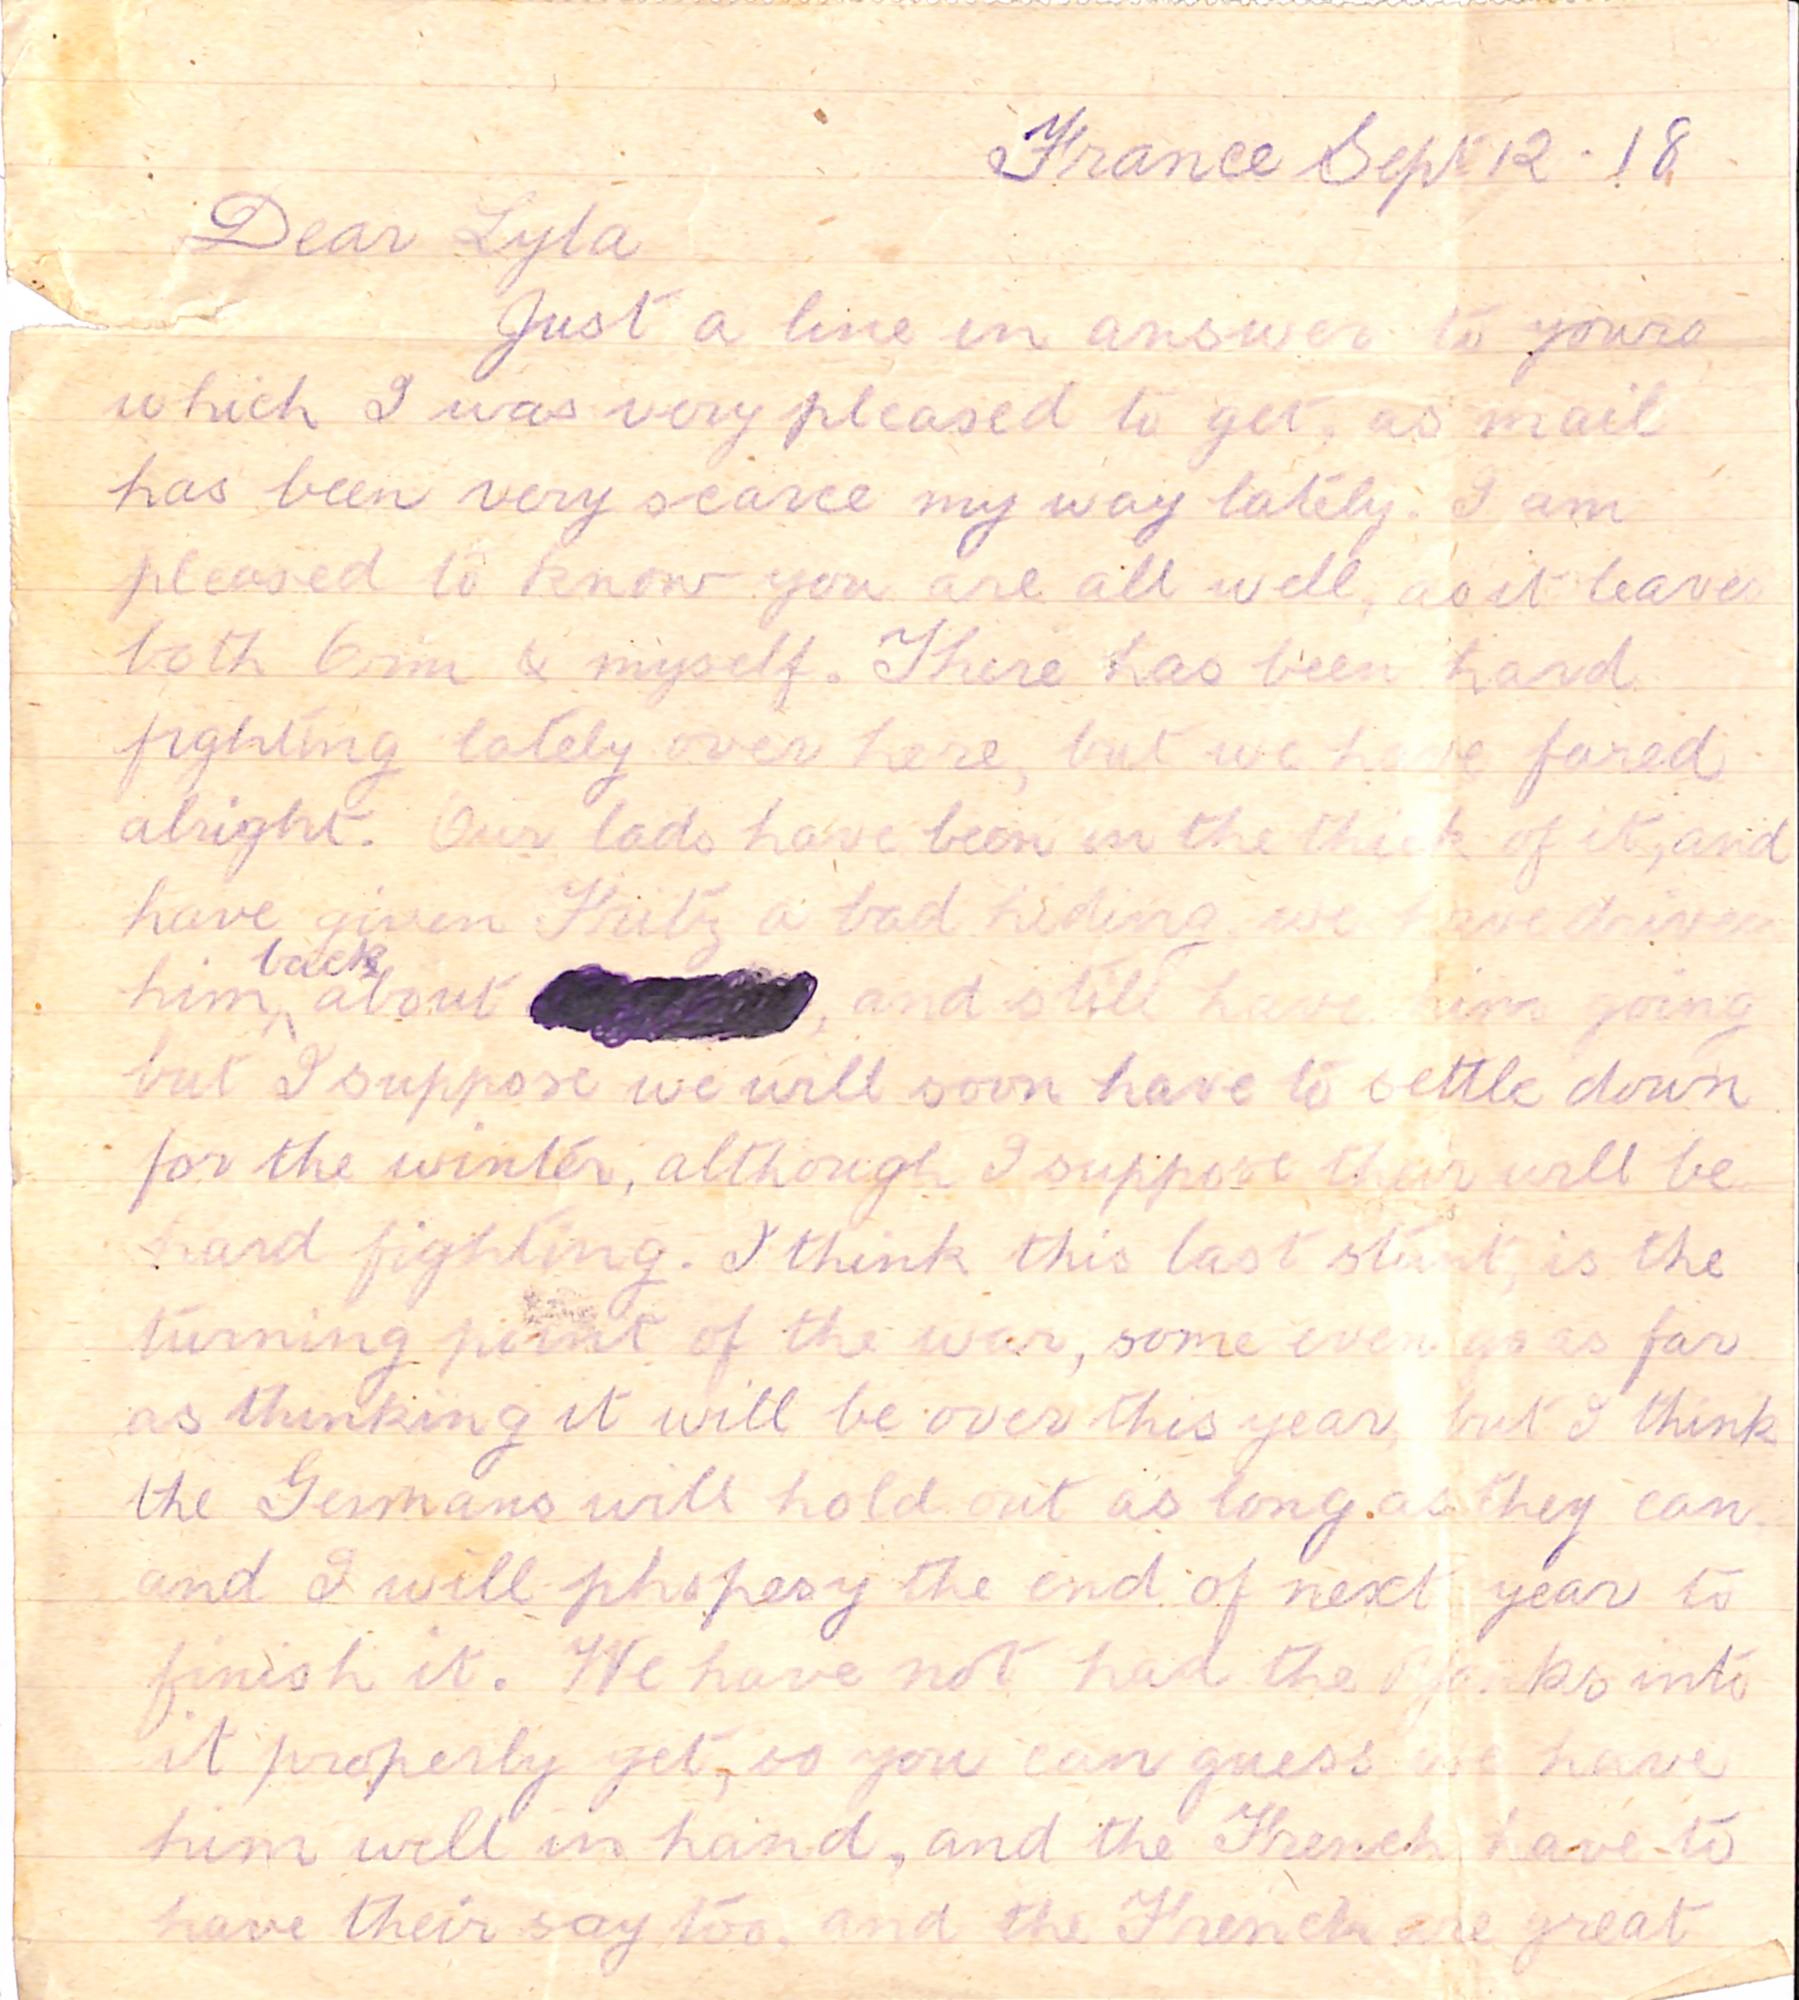 France Sept 12 - 18
Dear Lyla
Just a line in answer to yours
which I was very pleased to get, as mail
has been very scarce my way lately. I am
pleased to know you are all well, as it leaves
both & myself. There has been hard
fighting lately over here, but we have fared
alright. Our lads have been in the thick of it, and
have given Fritz a bad hiding we have driven
back
him, about , and still have him going
but I suppose we will soon have to settle down
for the winter, although I suppose thair will be
hard fighting. I think this last stunt, is the
turning point of the war, some even go as far
as thinking it will be over this year, but I think
the Germans will hold out as long as they can
and I will phopesy the end of next year to
finish it. We have not had the Yanks into
it properly yet, so you can guess we have
him well in hand, and the French have to
have their say too, and the French are great